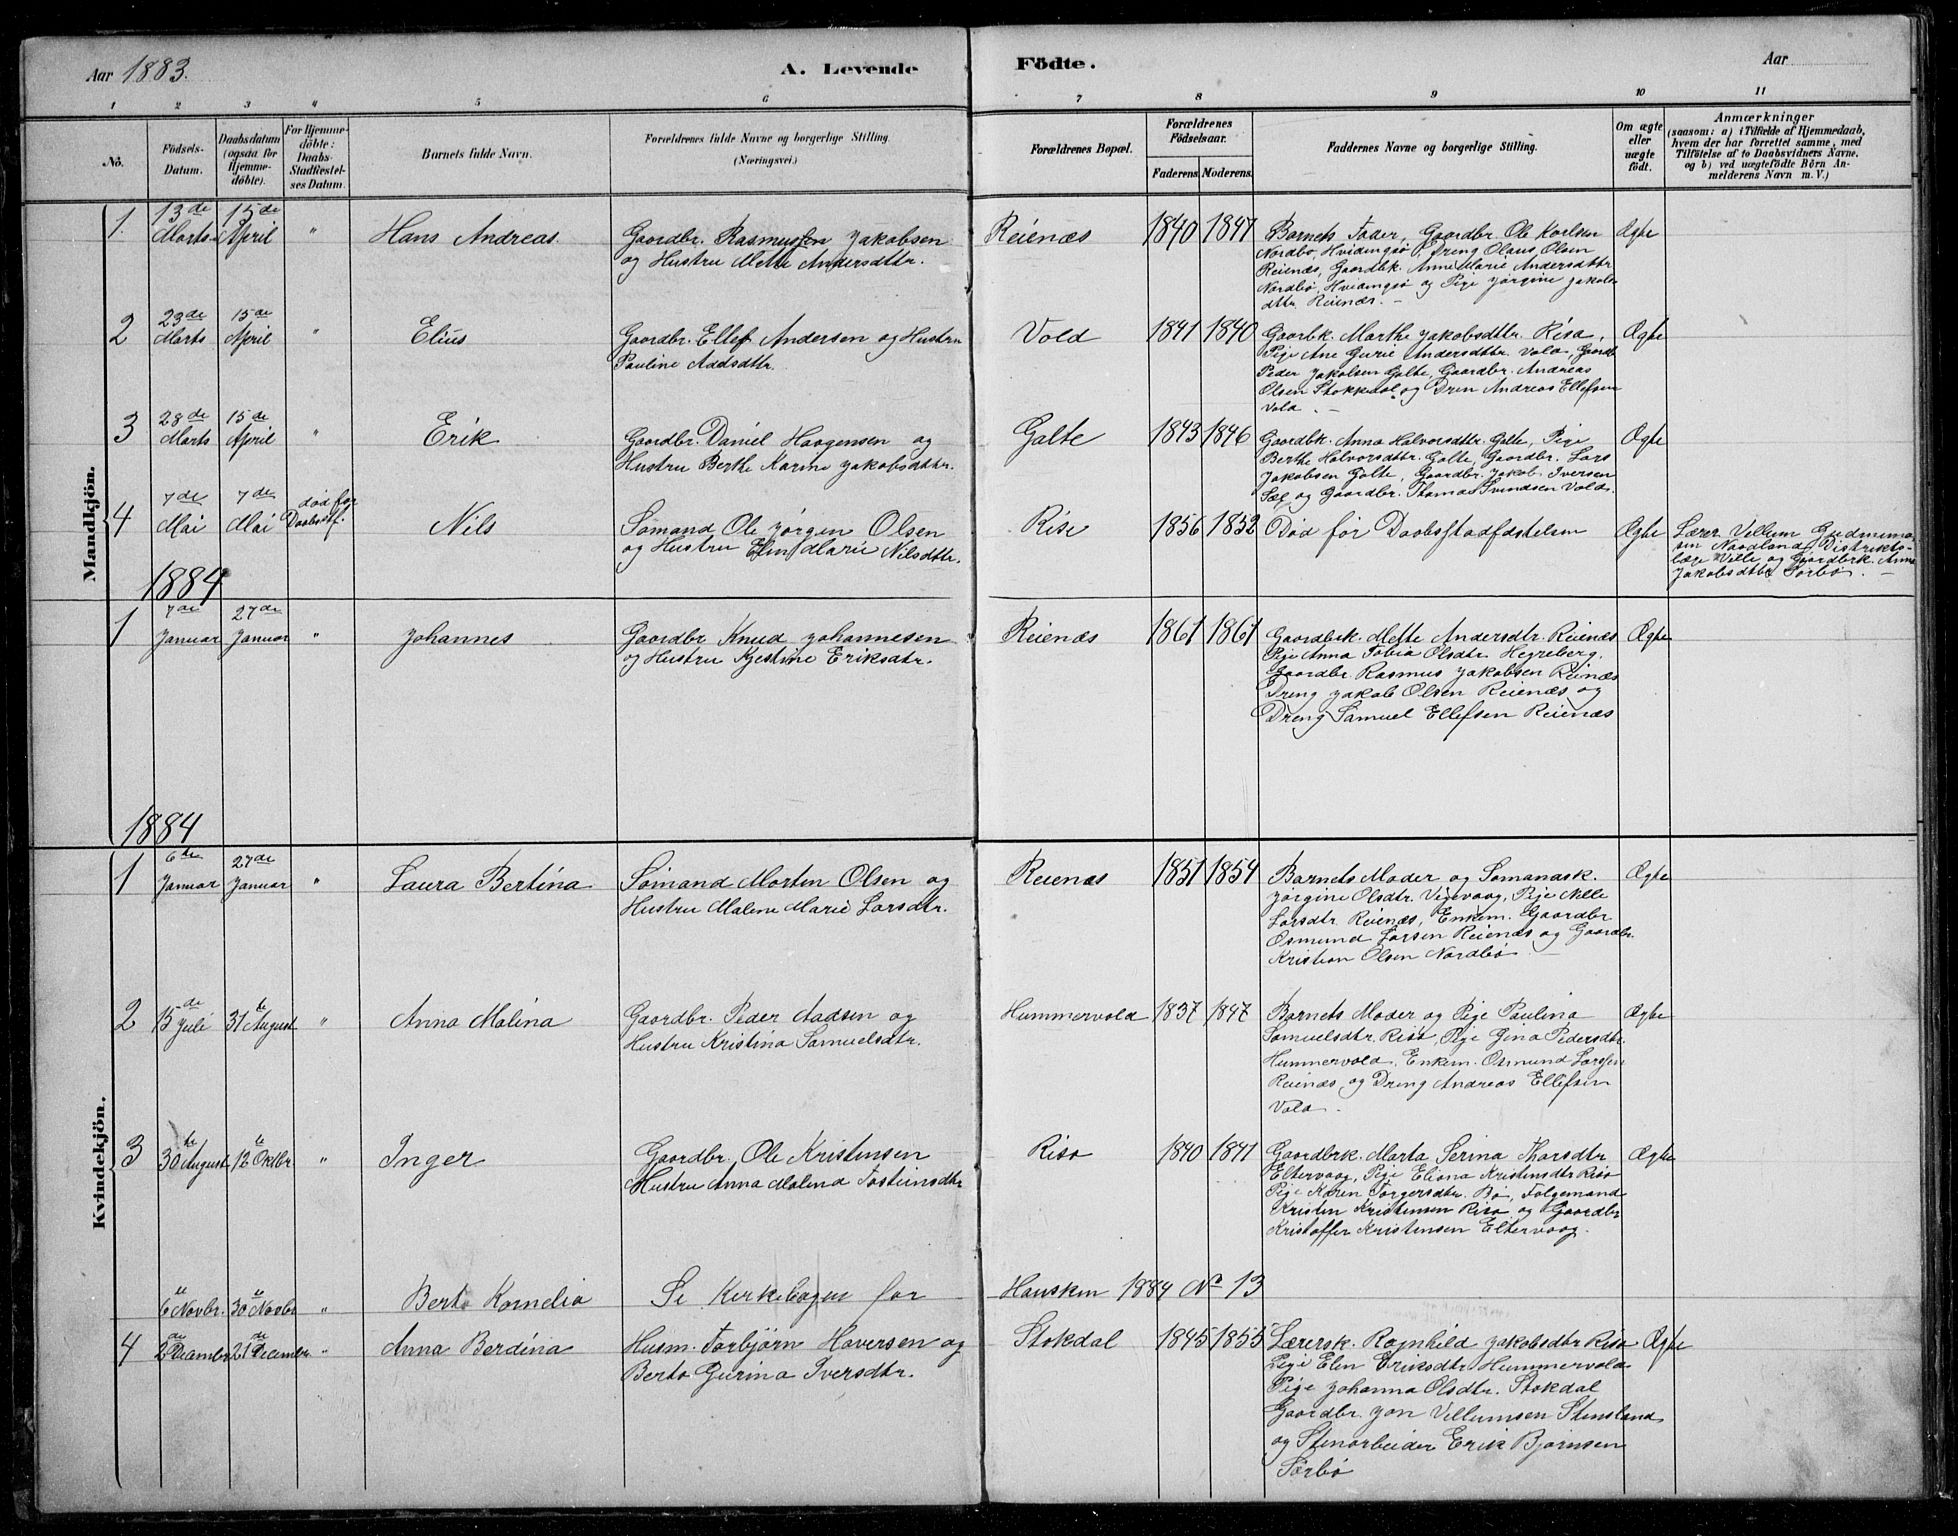 Aar 1883.
A. Levende Födte.
Aar
1 2 3 4 5 6 7 8 9 10 11
No.
Födsels-
Datum.
Daabsdatum
(ogsaa for
Hjemme-
döbte).
For Hjemme-
döbte:
Daabs-
Stadfæstel-
ses Datum.
Barnets fulde Navn.
Forældrenes fulde Navne og borgerlige Stilling.
(Næringsvei.)
Forældrenes Bopæl.
Forældrenes
Födselsaar.
Faderens. Moderens.
Faddernes Navne og borgerlige Stilling.
Om ægte
eller
uægte
födt.
Anmærkninger
(saasom: a) i Tilfælde af Hjemmedaab,
hvem der har forrettet samme, med
Tilföielse af to Daabsvidners Navne,
og b) ved uægtefödte Börn An-
melderens Navn m. V.)
Mandkjön.
1. 13de Marts 15de April " Hans Andreas.
Gaardbr. Rasmussen Jakobsen
og Hustru Mette Andersdttr.
Reienæs 1840 1847
Barnets Fader, Gaardbr. Ole Karlsen
Nordbø, Hvidingsø, Dreng Olaus Olsen
Reienæs, Gaardbk. Anne Marie Andersdttr
Nordbø, Hvidingsø og Pige Jørgine Jakobs
dttr. Reienæs. –
Ægte
2 23de Marts 15de April " Elius
Gaardbr. Ellef Andersen og Hustru
Pauline Aadsdttr.
Vold 1841 1840
Gaardbk. Marthe Jakobsdttr. Risa,
Pige Ane Gurie Andersdttr. Vold, Gaardb.
Peder Jakobsen Galte, Gaardbr. Andreas
Olsen Stokkdal og Dren Andreas Ellefsen
Vold. –
Ægte
3 28de Marts 15de April " Erik
Gaardbr. Daniel Haagensen og
Hustru Berthe Karine Jakobsdttr.
Galte 1843 1846
Gaardbk. Anna Halvorsdttr. Galte, Pige
Berthe Halvorsdttr. Galte, Gaardbr. Lars
Jakobsen Galte, Gaardbr. Jakob Iversen
Sæl og Gaardbr. Thomas Svindsen Vold.
Ægte
4 7de Mai 7de Mai død før Daabsstf. Nils
Sømand Ole Jørgen Olsen
og Hustru Elin Marie Nilsdttr.
Rise 1856 1852
Død før Daabsstadfæstelsen
Ægte
Lærer Vellum Gudmunds
sen Nordland, Distrikts-
læge Wille og Gaardbrk. Anne
Jakobsdttr Sørbø. –
1884
1 7de Januar 27de Januar " Johannes
Gaardbr Knud Johannesen
og Hustru Kjestine Eriksdtr.
Reienæs 1861 1861
Gaardbrk. Mette Andersdtr. Reienæs
Pige Anna Tobia Olsdtr. Hegreberg.
Gaardbr Rasmus Jakobsen Reinæs
Dreng Jakob Olsen Reienæs og
Dreng Samuel Ellefsen Reienæs
Ægte
1884
Kvindekjön.
1 6te Januar 27de Januar " Laura Bertina
Sømand Morten Olsen og
Hustru Malene Marie Larsdtr.
Reienæs 1851 1854
Barnets Moder og Sømandsk.
Jørgine Olsdtr. Vigevaag, Pige Nille
Larsdtr Reienæs, Enkem. Gaardbr
Osmund Larsen Reienæs og Gaardbr.
Kristian Olsen Nordbø –
Ægte
2 15de Juli 31te August " Anna Malina
Gaardbr. Peder Aadsen og
Hustru Kristina Samuelsdtr.
Hummervold 1837 1847
Barnets Moder og Pige Paulina
Samuelsdtr. Risø, Pige Gina Pedersdtr.
Hummervold, Enkem. Osmund Larsen
Reienæs, og Dreng Andreas Ellefsen
Vold.
Ægte
3 30te August 12te Oktbr " Inger
Gaardbr. Ole Kristensen
Hustru Anna Malena Tosteinsdtr
Risa 1840 1841
Gaardbrk. Marta Serina Thorsdtr
Eltervaag, Pige Eliana Kristensdtr Risø
Pige Karen Torgersdtr. Bø, Følgemand
Kristen Kristensen Risa og Gaardbr
Kristoffer Kristensen Eltervaag.
Ægte
6te Novbr. 30te Novbr " Berta Kornelia
Se Kirkebogen for Hausken 1884 No 13
4 2den December 21de December " Anna Berdina
Husm. Torbjørn Haversen og
Berta Gurina Iversdtr.
Stokdal 1845 1855
Lærersk. Ragnhild Jakobsdtr Risa
Pige Elen Eriksdtr Hummervold
Pige Johanna Olsdtr. Stokdal
Gaardbr. Jon Villumsen Stensland
og Stenarbeider Erik Bjørnsen
Sørbø
Ægte